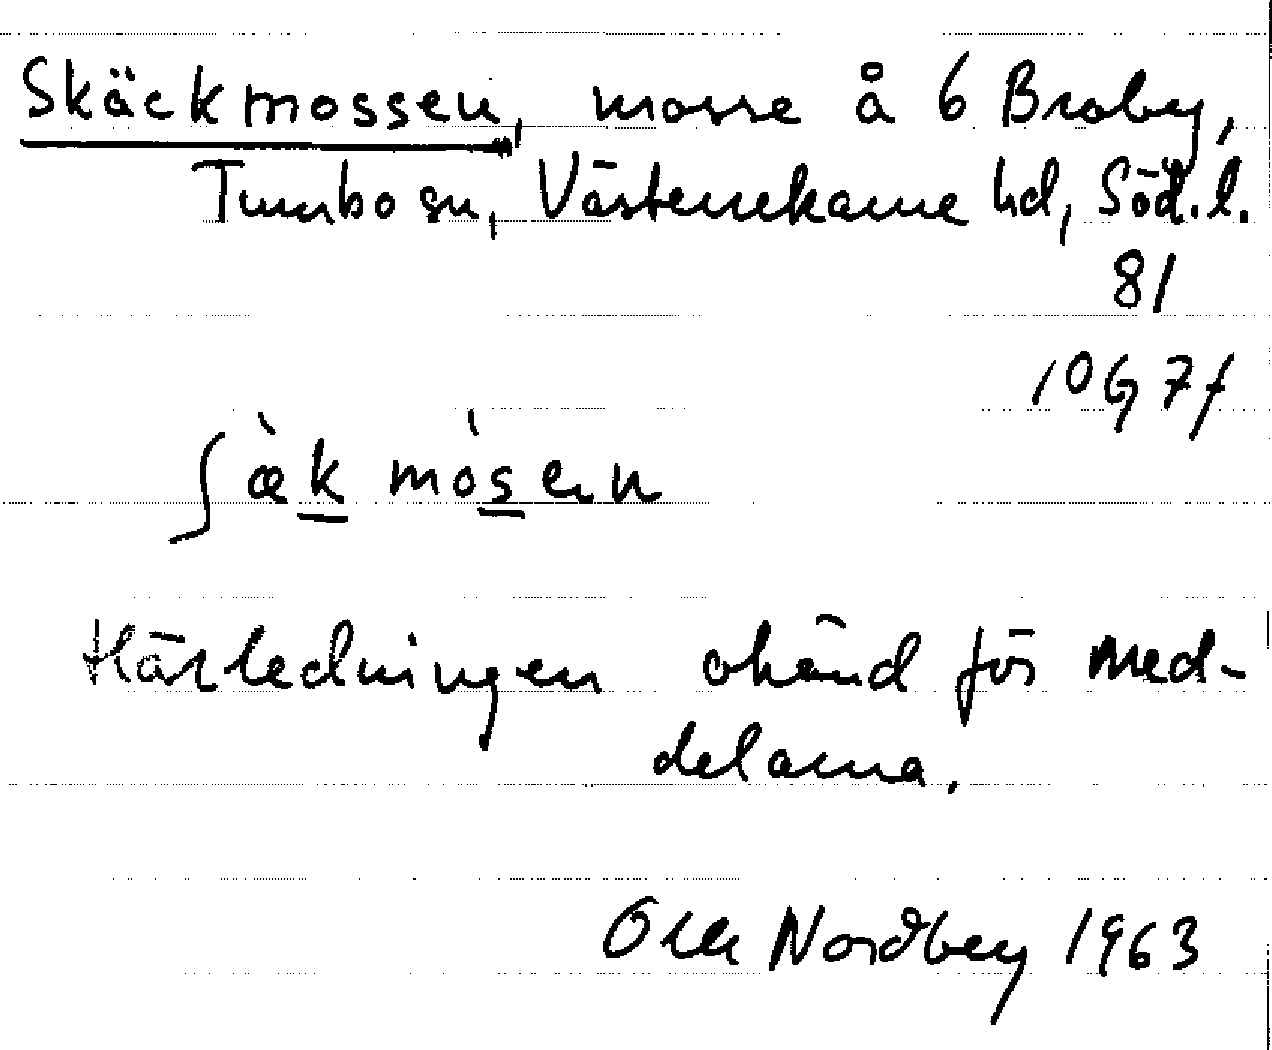 Skäckmossen, mosse å 6 Broby,
Tumbo sn, Västerrekarne hd, Söd.l.
81
10G 7f
ʃæ̀k mósen
Härledningen okänd för med-
delarna.
Olle Nordbey 1963